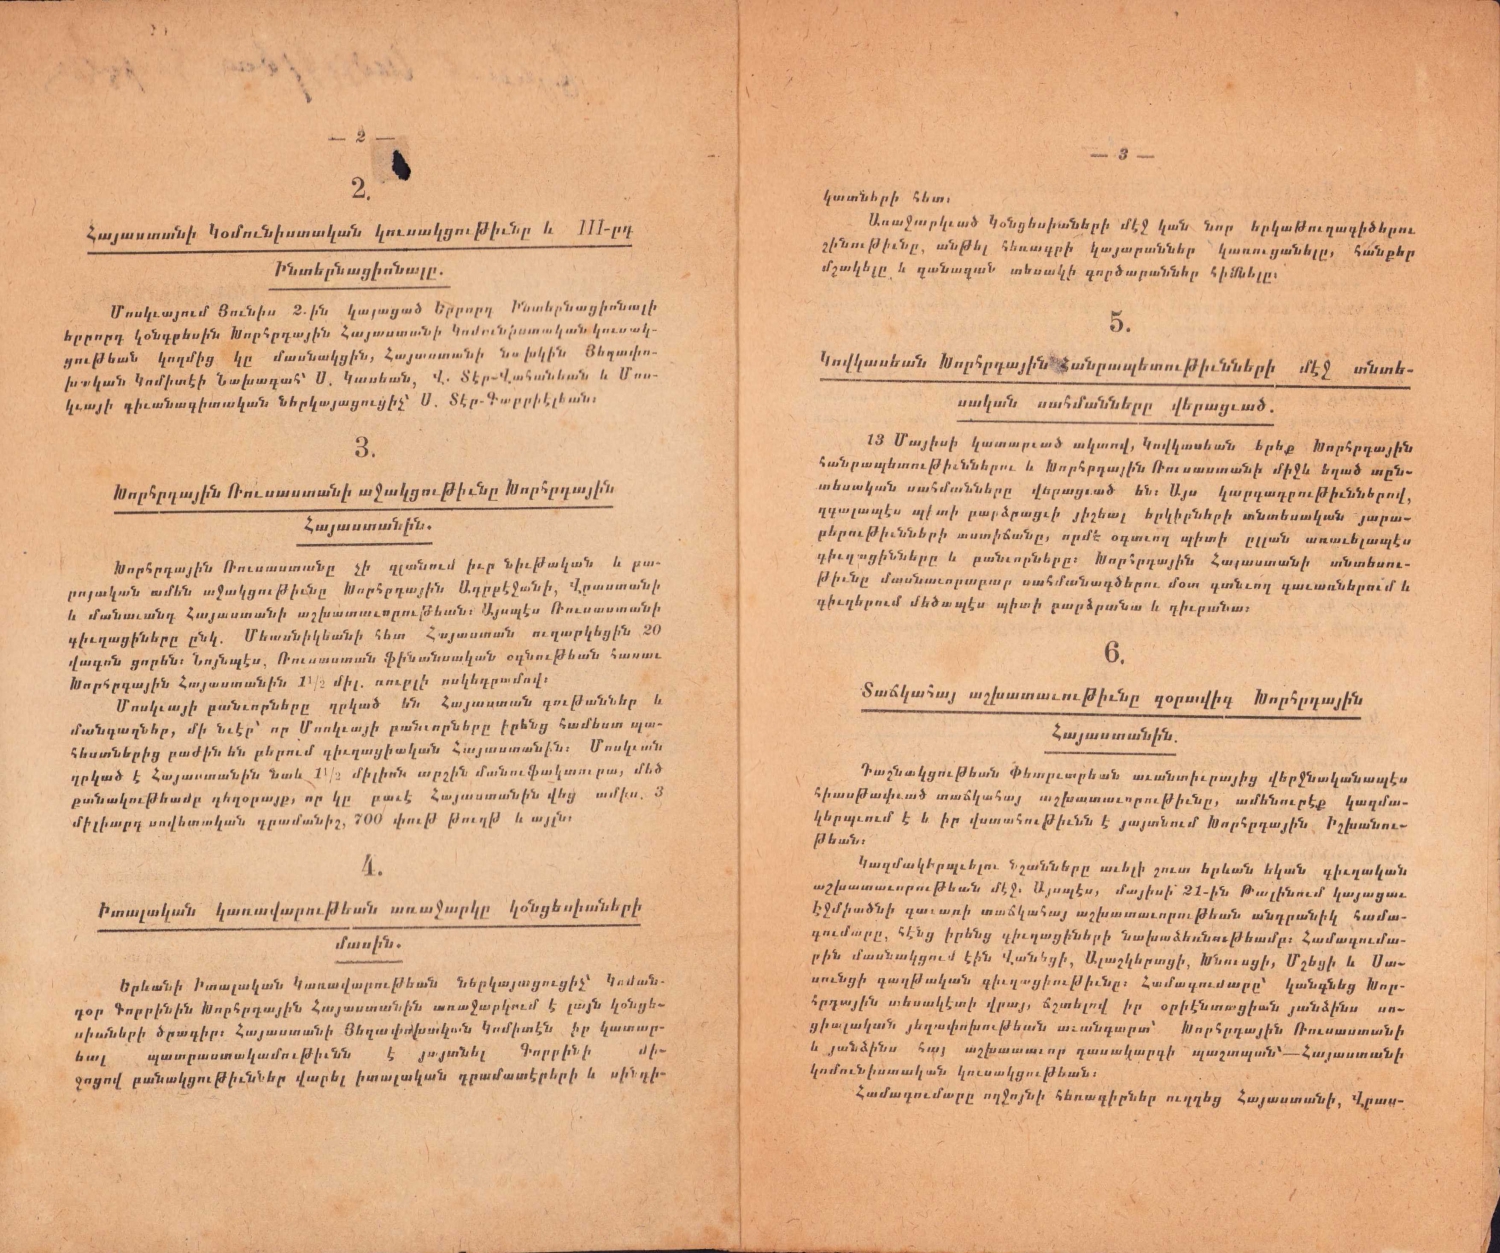 — 2 —
2.
Հայաստանի Կօմունիստական կուսակցութիւնը և III-րդ
Ինտերնացիօնալը.
Մոսկւայում Յունիս 2-ին կայացած Երրորդ Ինտերնացիօնալի
երրորդ կօնգրեսին Խորհրդային Հայաստանի Կոմունիստական կուսակ-
ցութեան կողմից կը մասնակցին, Հայաստանի նախկին Յեղափո-
խական Կոմիտէի Նախագահ՝ Ս. Կասեան, Վ. Տէր-Վահանեան և Մոս-
կւայի դիւանագիտական ներկայացուցիչ՝ Ս. Տէր-Գաբրիէլեան։
3.
Խորհրդային Ռուսաստանի աջակցութիւնը Խորհրդային
Հայաստանին.
Խորհրդային Ռուսաստանը չի զլանում իւր նիւթական և բա-
րոյական ամեն աջակցութիւնը Խորհրդային Ադրբէջանի, Վրաստանի
և մանաւանդ Հայաստանի աշխատաւորութեան։ Այսպէս Ռուսաստանի
գիւղացիները ընկ. Մեասնիկեանի հետ Հայաստան ուղարկեցին 20
վագոն ցորեն։ Նոյնպէս, Ռուսաստան ֆինանսական օգնութեան հասաւ
Խորհրդային Հայաստանին 1½ միլ. ռուբլի ոսկեդրամով։
Մոսկւայի բանւորները ղրկած են Հայաստան գութաններ և
մանգաղներ, մի նւէր՝ որ Մոսկւայի բանւորները իրենց համեստ պա-
հեստներից բաժին են բերում գիւղացիական Հայաստանին։ Մոսկւան
ղրկած է Հայաստանին նաև 1½ միլիոն արշին մանուֆակտուրա, մեծ
քանակութեամբ դեղօրայք, որ կը բաւէ Հայաստանին վեց ամիս. 3
միլիարդ սովետական դրամանիշ, 700 փութ թուղթ և այլն։
4.
Իտալական կառավարութեան առաջարկը կօնցեսիաների
մասին.
Երևանի Իտալական Կառավարութեան ներկայացուցիչ՝ Կոման-
դօր Գորրինին Խորհրդային Հայաստանին առաջարկում է լայն կօնցե-
սիաների ծրագիր։ Հայաստանի Յեղափոխական Կոմիտէն իր կատար-
եալ պատրաստակամութիւնն է յայտնել Գորրինի մի-
ջոցով բանակցութիւններ վարել իտալական դրամատէրերի և սինդի-
— 3 —
կատների հետ։
Առաջարկւած Կօնցեսիաների մէջ կան նոր երկաթուղագիծերու
շինութիւնը, անթել հեռագրի կայարաններ կառուցանելը, հանքեր
մշակելը և զանազան տեսակի գործարաններ հիմնելը։
5.
Կովկասեան Խորհրդային Հանրապետութիւնների մէջ տնտե-
սական սահմանները վերացւած.
13 Մայիսի կատարւած ակտով, Կովկասեան երեք Խորհրդային
հանրապետութիւններու և Խորհրդային Ռուսաստանի միջև եղած տըն-
տեսական սահմանները վերացւած են։ Այս կարգադրութիւններով,
զգալապէս պիտի բարձրացւի յիշեալ երկիրների տնտեսական յարա-
բերութիւնների աստիճանը, որմէ օգտւող պիտի ըլլան առաւելապէս
գիւղացինները և բանւորները։ Խորհրդային Հայաստանի տնտեսու-
թիւնը մասնաւորաբար սահմանագծերու մօտ գտնւող գաւառներում և
գիւղերում մեծապէս պիտի բարձրանա և զիւրանա։
6.
Տաճկահայ աշխատաւութիւնը զօրավիգ Խորհրդային
Հայաստանին.
Դաշնակցութեան Փետրւարեան աւանտիւրայից վերջնականապէս
հիասթափւած տաճկահայ աշխատաւորութիւնը, ամենուրէք կազմա-
կերպւում է և իր վստահութիւնն է յայտնում Խորհրդային Իշխանու-
թեան։
Կազմակերպւելու նշանները աւելի շուտ երևան եկան գիւղական
աշխատաւորութեան մէջ։ Այսպէս, մայիսի 21-ին Թալինում կայացաւ
Էջմիածնի գաւառի տաճկահայ աշխատաւորութեան անդրանիկ համա-
գումարը, հէնց իրենց գիւղացիների նախաձեռնութեամբ։ Համագումա-
րին մասնակցում էին Վանեցի, Ալաշկերտցի, Խնուսցի, Մշեցի և Սա-
սունցի գաղթական գիւղացիութիւնը։ Համագումարը՝ կանգնեց Խոր-
հրդային տեսակէտի վրայ, ճշտելով իր օրիէնտացիան յանձինս սո-
ցիալական յեղափոխութեան աւանգարտ՝ Խորհրդային Ռուսաստանի
և յանձինս հայ աշխատաւոր դասակարգի պաշտպան՝—Հայաստանի
կոմունիստական կուսակցութեան։
Համագումարը ողջոյնի հեռագիրներ ուղղեց Հայաստանի, Վրաս-